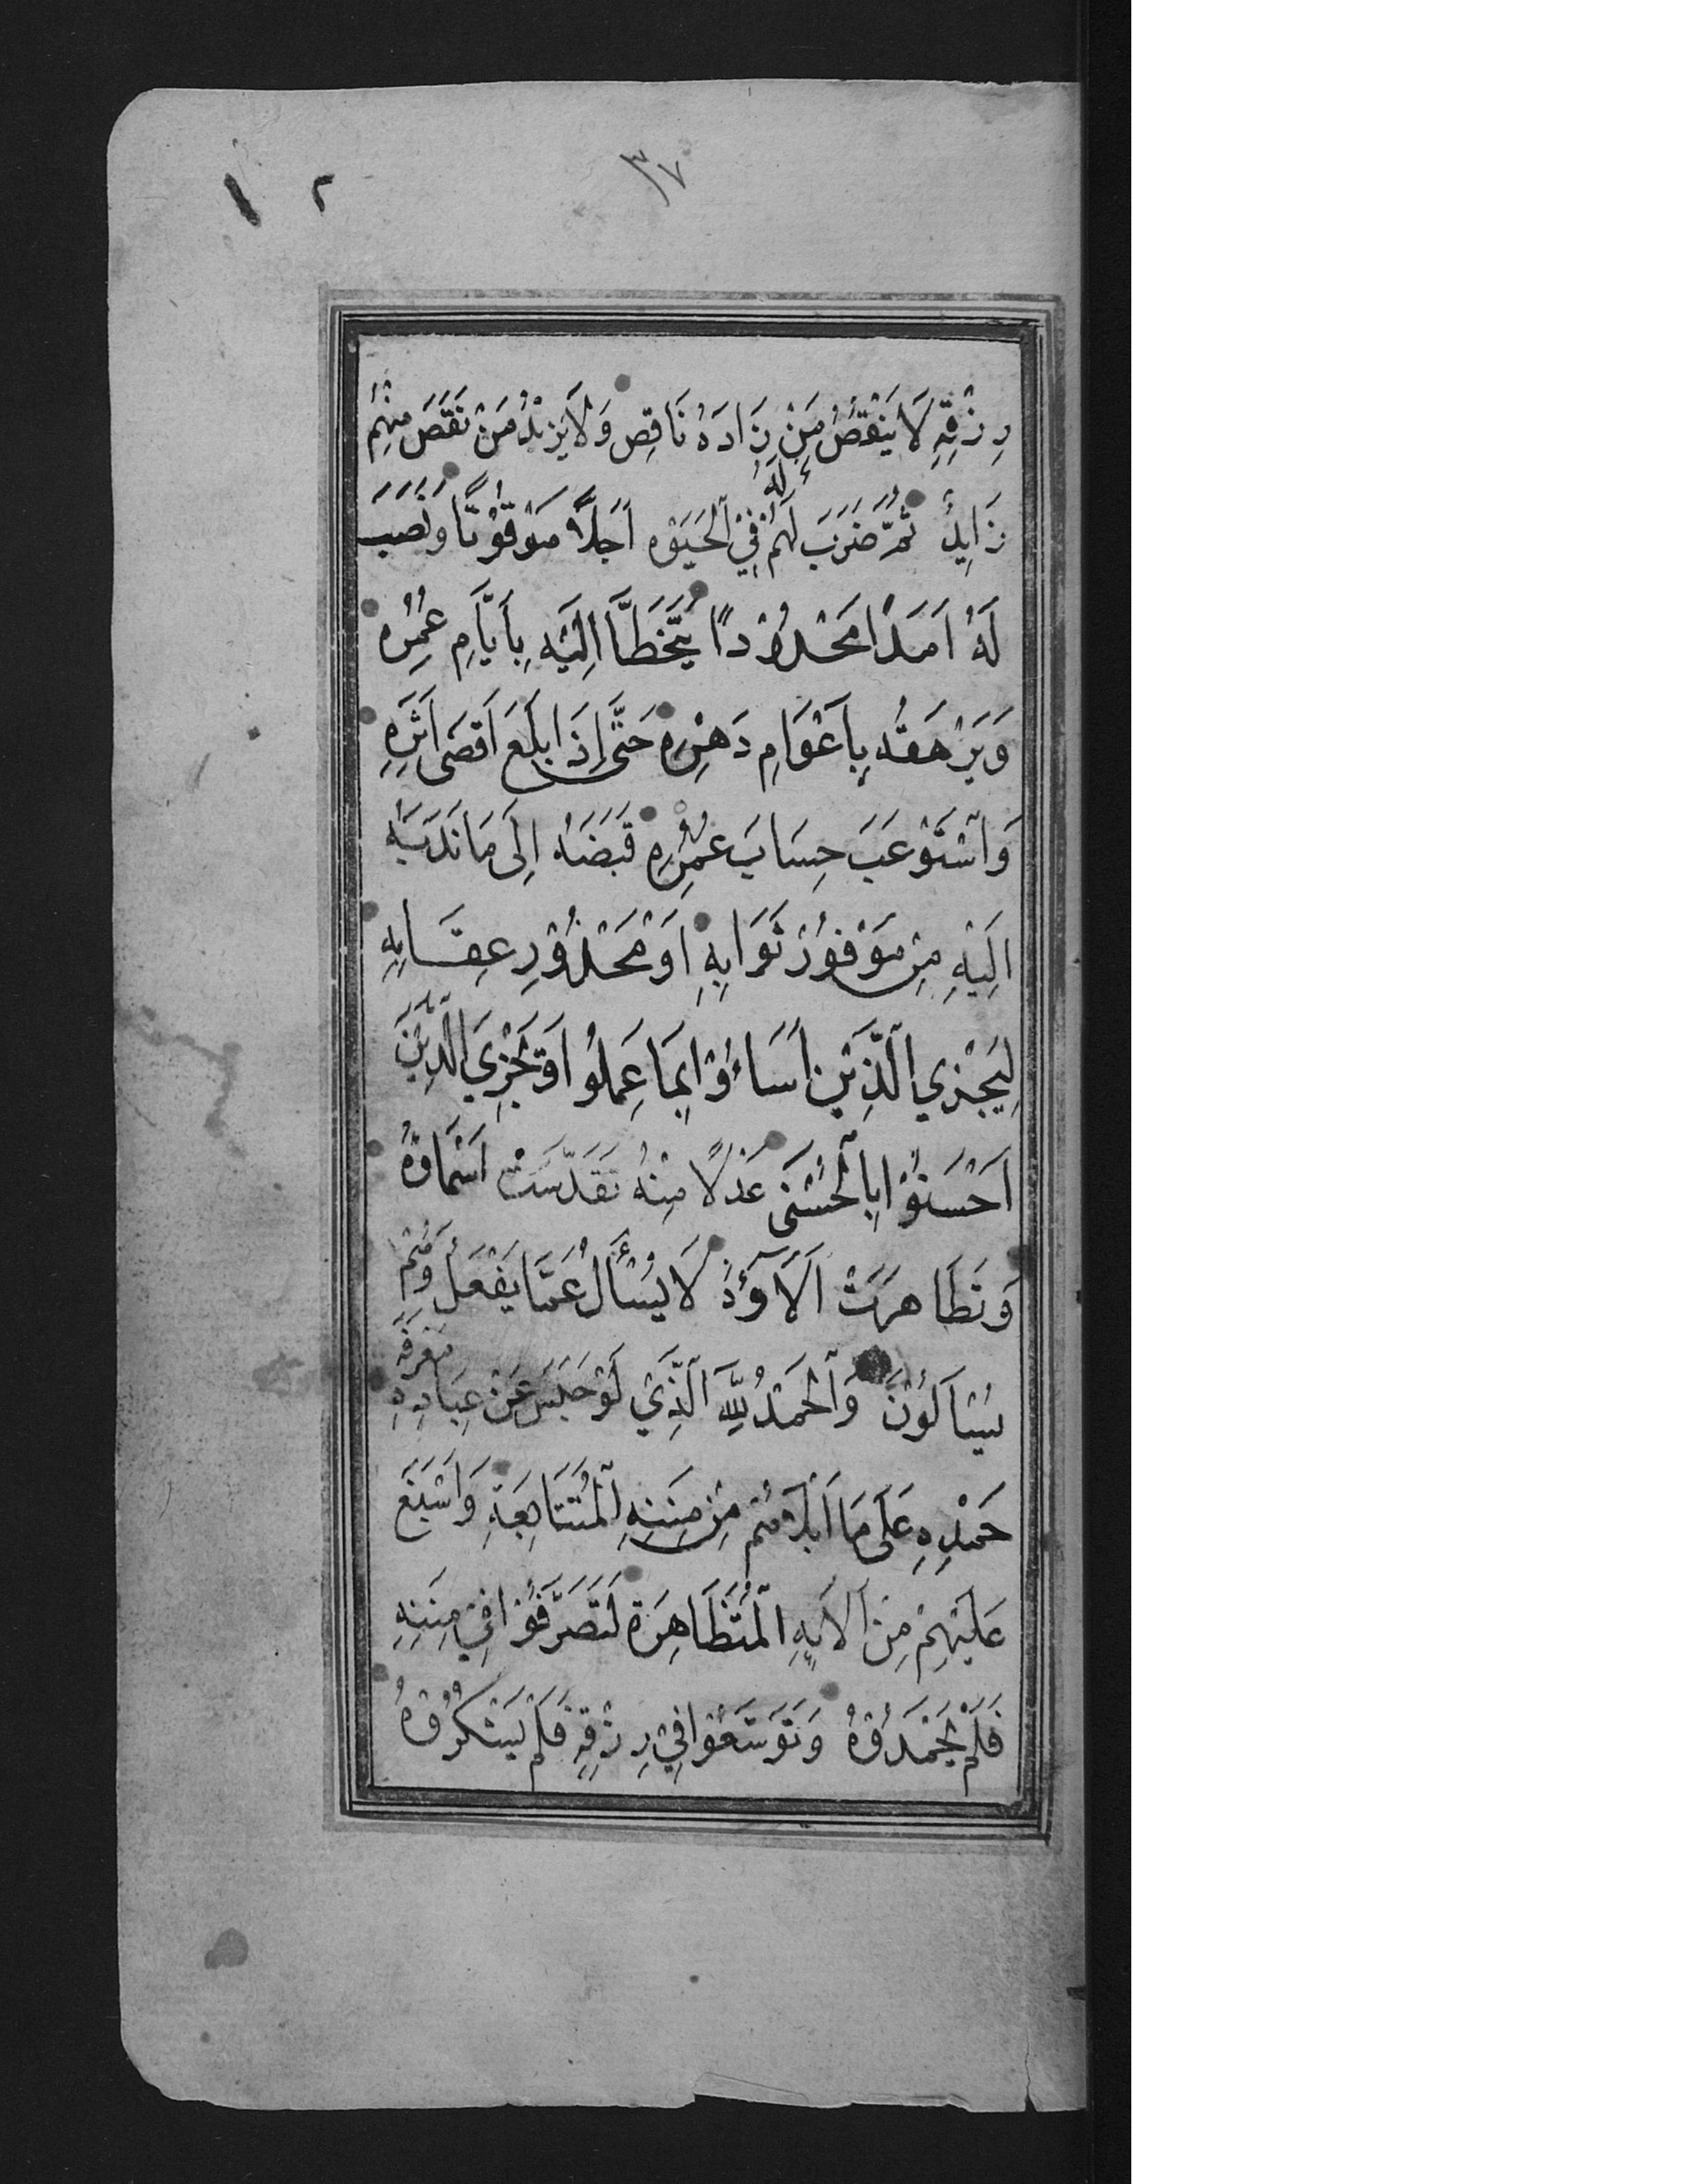 ٣٧
٢ ١
رِزْقِهِ لَا يَنْقُصُ مَنْ زَادَهُ نَاقِص وَلَا يَزِيْدُ مَنْ نَقَصَ مِنْهُمْ
زَايِدٌ ثُمَّ ضَرَبَ لَهُمْ لَهُ فِيْ ٱلْحَيَوٰهِ اَجَلًا مَوْقُوْتًا وَنَصَبَ
لَهُ اَمَدًا مَحْدُوْدًا يَتَخَطَّا اِلَيْهِ بِأَيَّامِ عُمُرِه
وَيَرْهَقُهُ بِاَعْوَامِ دَهْرِهِ حَتَّى اِذَا بَلَغَ اَقْصَى اَثَرِهِ
وَٱسْتَوْعَبَ حِسَابَ عُمُرِهِ قَبَضَهُ اِلَى مَا نَدَبَهُ
اِلَيْهِ مِنْ مَوْفُوْرِ ثَوَابِهِ اَوْ مَحْذُوْرِ عِقَابِهِ
لِيَجْزِي ٱلَّذِيْنَ اَسَاءُوْا بِمَا عَمِلُوا وَيَجْزِيَ ٱلَّذِيْنَ
اَحْسَنُوْا بِٱلْحُسْنَى عَدْلًا مِنْهُ تَقَدَّسَتْ اَسْمَاؤُهُ
وَتَظَاهَرَتْ اٰلَآؤُهُ لَا يُسْأَلُ عَمَّا يَفْعَلُ وَهُمْ
يُسْاَلُوْنَ وَٱلْحَمْدُ لِلّٰهِ ٱلَّذِيْ لَوْ حَبَسَ عَنْ عِبَادِهِ مَعْرِفَةَ
حَمْدِهِ عَلَى مَا اَبْلَاهُمْ مِنْ مِنَنِهِ ٱلْمُتَتَابِعَةِ وَاَسْبَغَ
عَلَيْهِمْ مِنْ اٰلَايِهِ ٱلْمُتَظَاهِرَة لَتَصَرَّفُوْا فِيْ مِنَنِهِ
فَلَمْ يَحْمَدُوْهُ وَتَوَسَّعُوْا فِيْ رِزْقِهِ فَلَمْ يَشْكُرُوْهُ